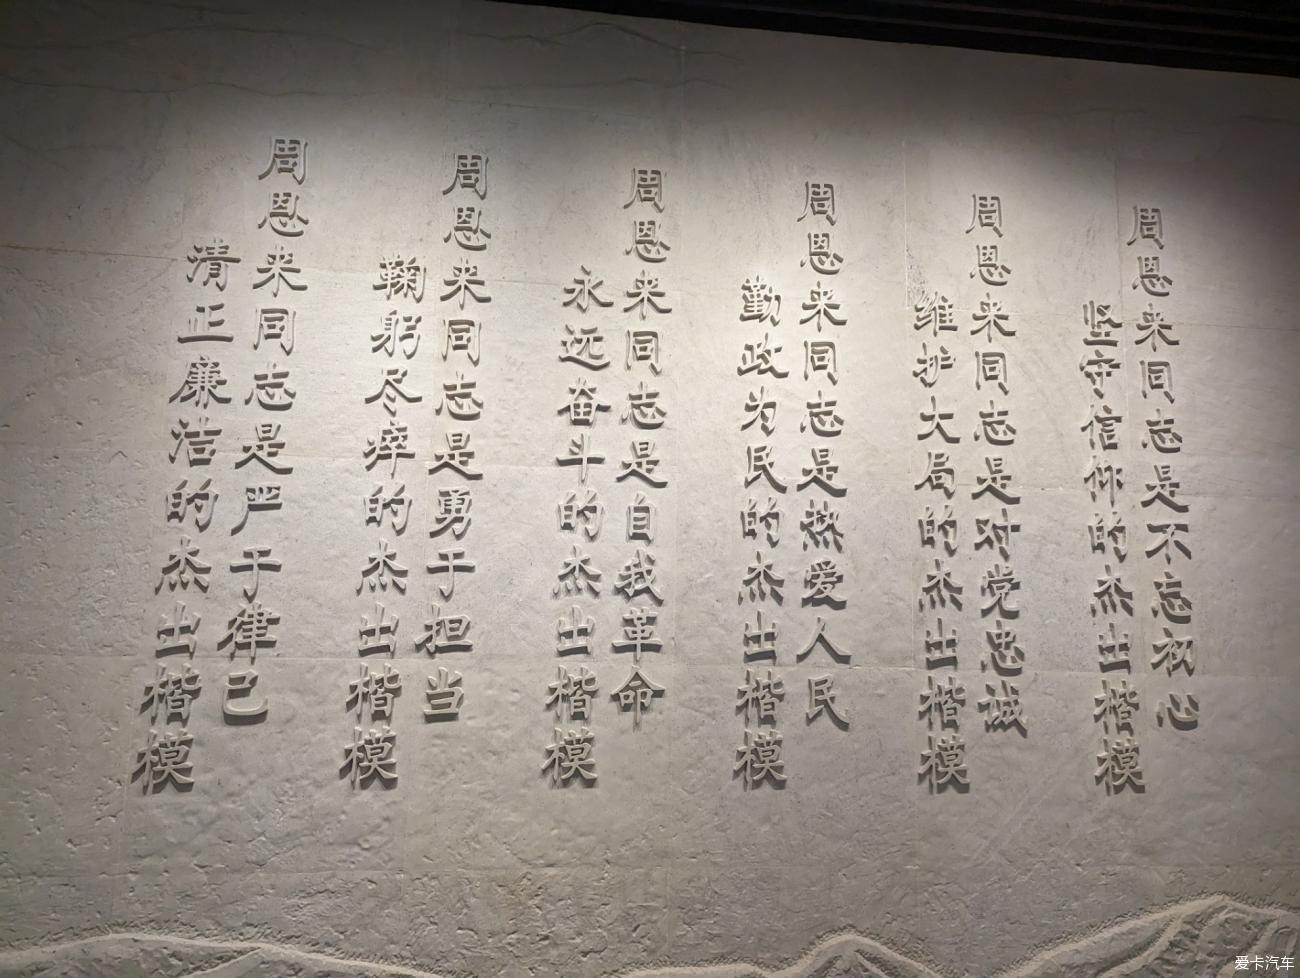 周恩来同志是不忘初心
坚守信仰的杰出楷模
周恩来同志是对党忠诚
维护大局的杰出楷模
周恩来同志是热爱人民
勤政为民的杰出楷模
周恩来同志是自我革命
永远奋斗的杰出楷模
周恩来同志是勇于担当
鞠躬尽瘁的杰出楷模
周恩来同志是严于律己
清正廉洁的杰出楷模
爱卡汽车